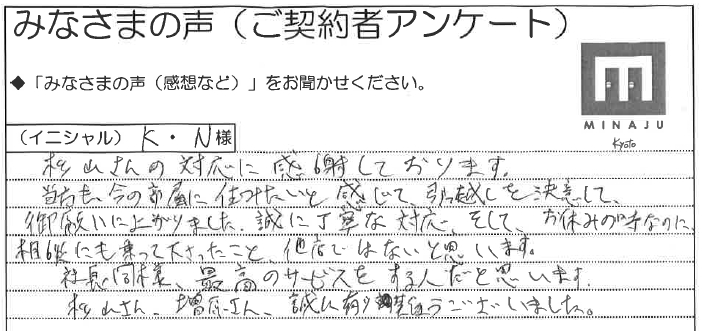 みなさまの声（ご契約者アンケート）
◆「みなさまの声（感想など）」をお聞かせください。
MINAJU
Kyoto
（イニシャル）K・N様
松山さんの対応に感謝しております。
当方も、今の部屋に住みたいと感じて、引越しを決意して、
御願いに上がりました。誠に丁寧な対応、そして、お休みの時なのに、
相談にも乗って下さったこと、他店ではないと思います。
社長同様、最高のサービスをする人だと思います。
松山さん、増尾さん、誠に有り難うございました。